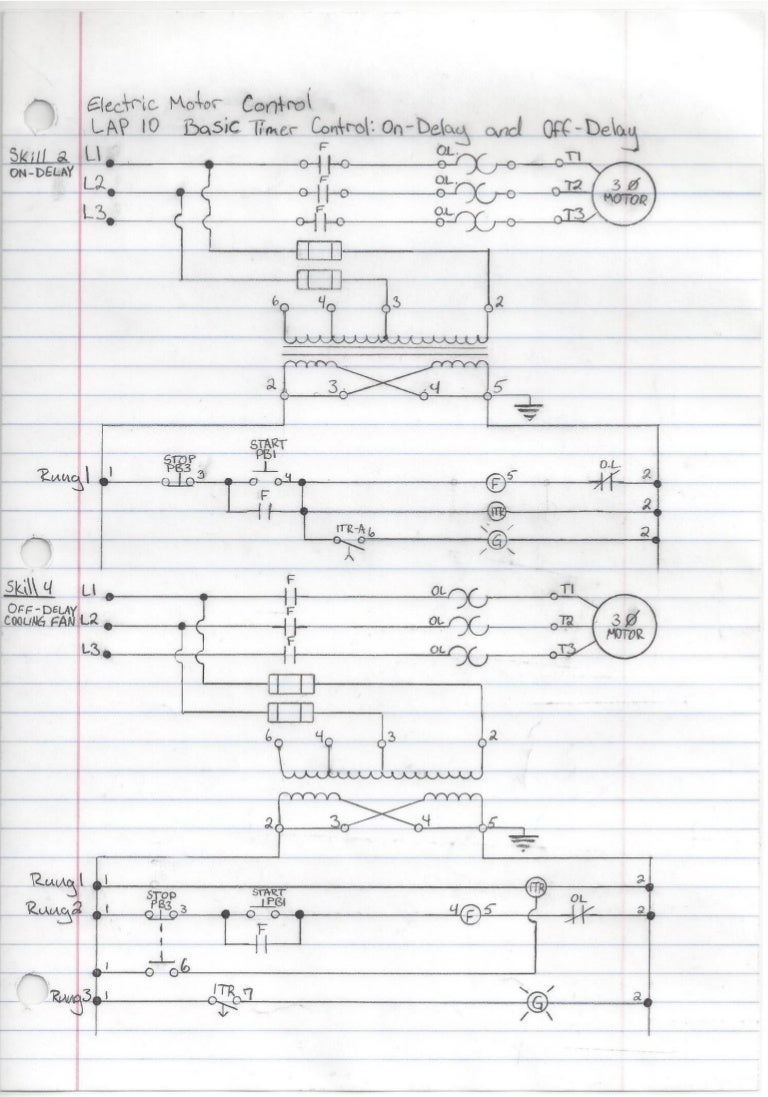 Electric Motor Control
LAP 10 Basic Timer Control: On-Delay and Off-Delay
Skill 2
ON-DELAY
L1 F OL T1
L2 F OL T2 3 Ø MOTOR
L3 F OL T3
6 4 3 2
2 3 4 5
Rung 1 1 STOP PB3 3 START PB1 4 F 5 O.L 2
F 1TR 2
1TR-A 6 G 2
Skill 4
OFF-DELAY
COOLING FAN
L1 F OL T1
L2 F OL T2 3 Ø MOTOR
L3 F OL T3
6 4 3 2
2 3 4 5
Rung 1 1 1TR 2
Rung 2 1 STOP PB3 3 START 1PB1 4 F 5 OL 2
F
1 6
Rung 3 1 1TR 7 G 2